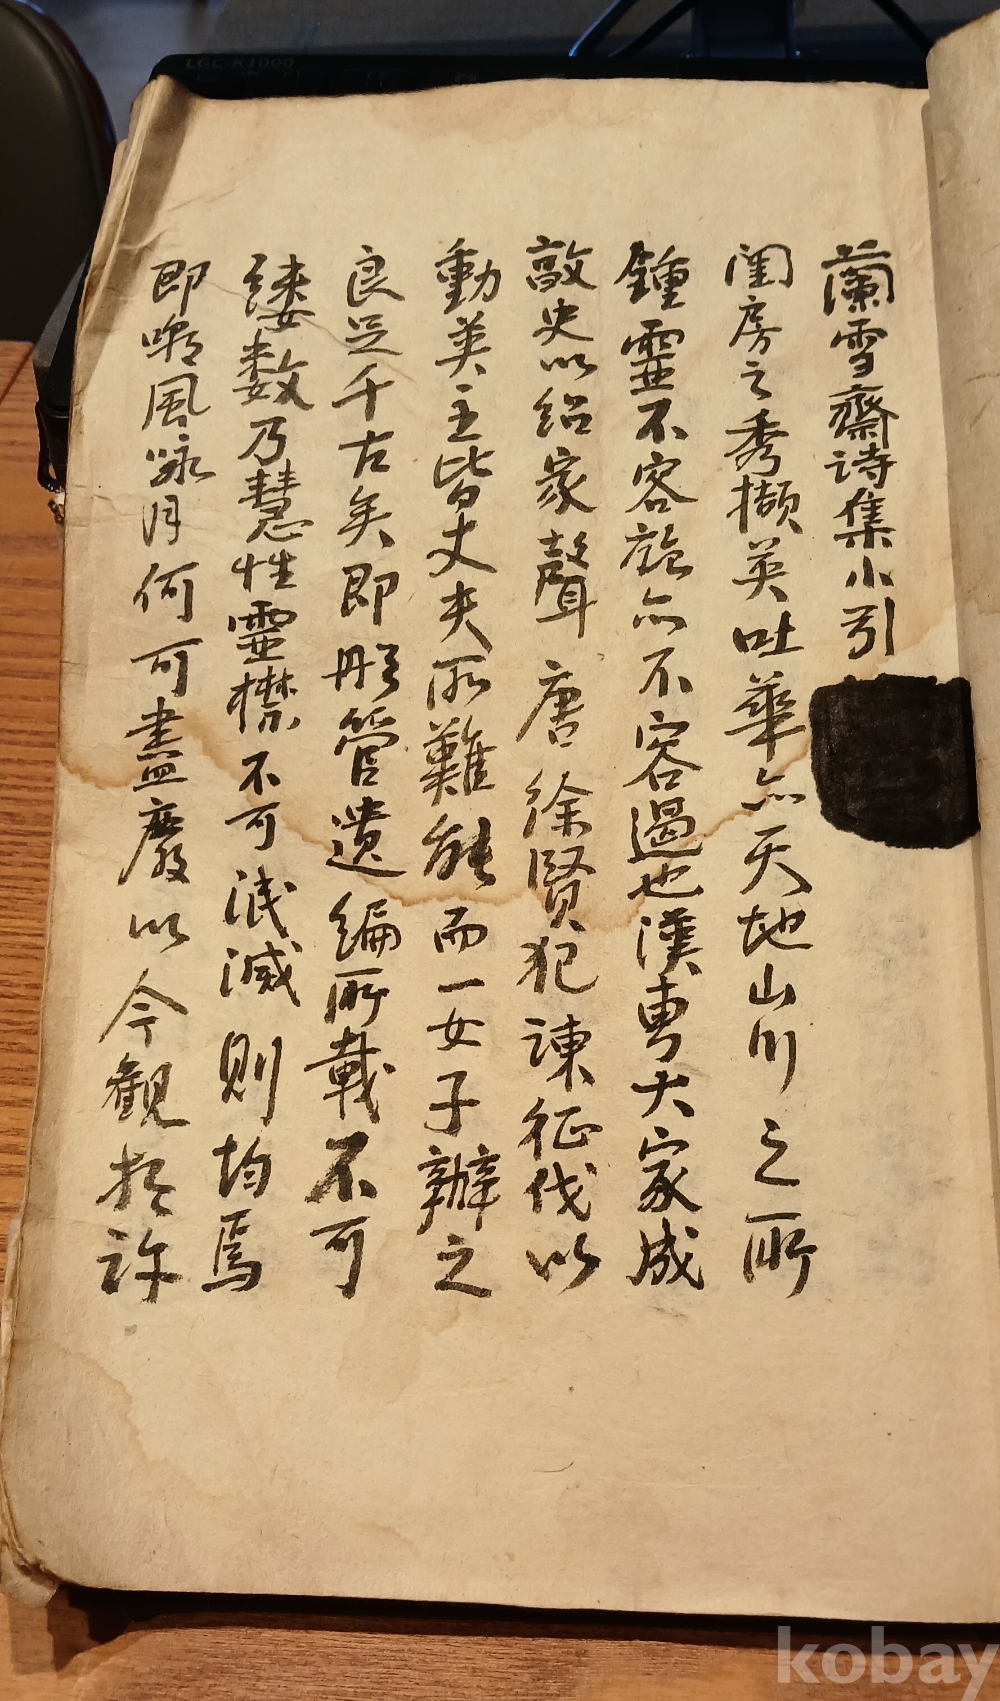 蘭雪齋詩集小引
閨房之秀擷英吐華亦天地山川之所
鍾靈不容彊亦不容遏也漢曹大家成
敦史以紹家聲唐徐賢妃諫征伐以
動英主皆丈夫所難能而一女子辦之
良足千古矣即彤管遺編所載不可
縷數乃慧性靈襟不可泯滅則均焉
即嘲風咏月何可盡廢以今觀於許
LGC-K1000
kobay